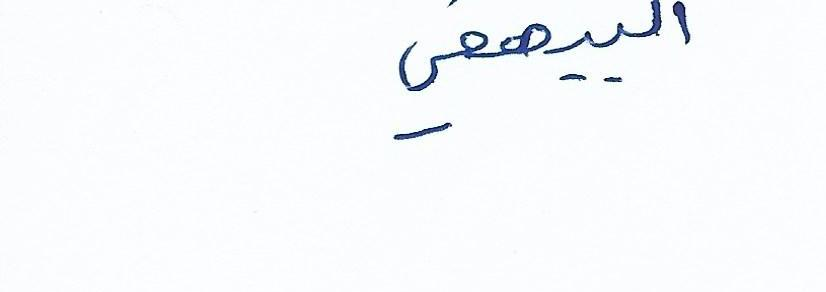 البيهقي